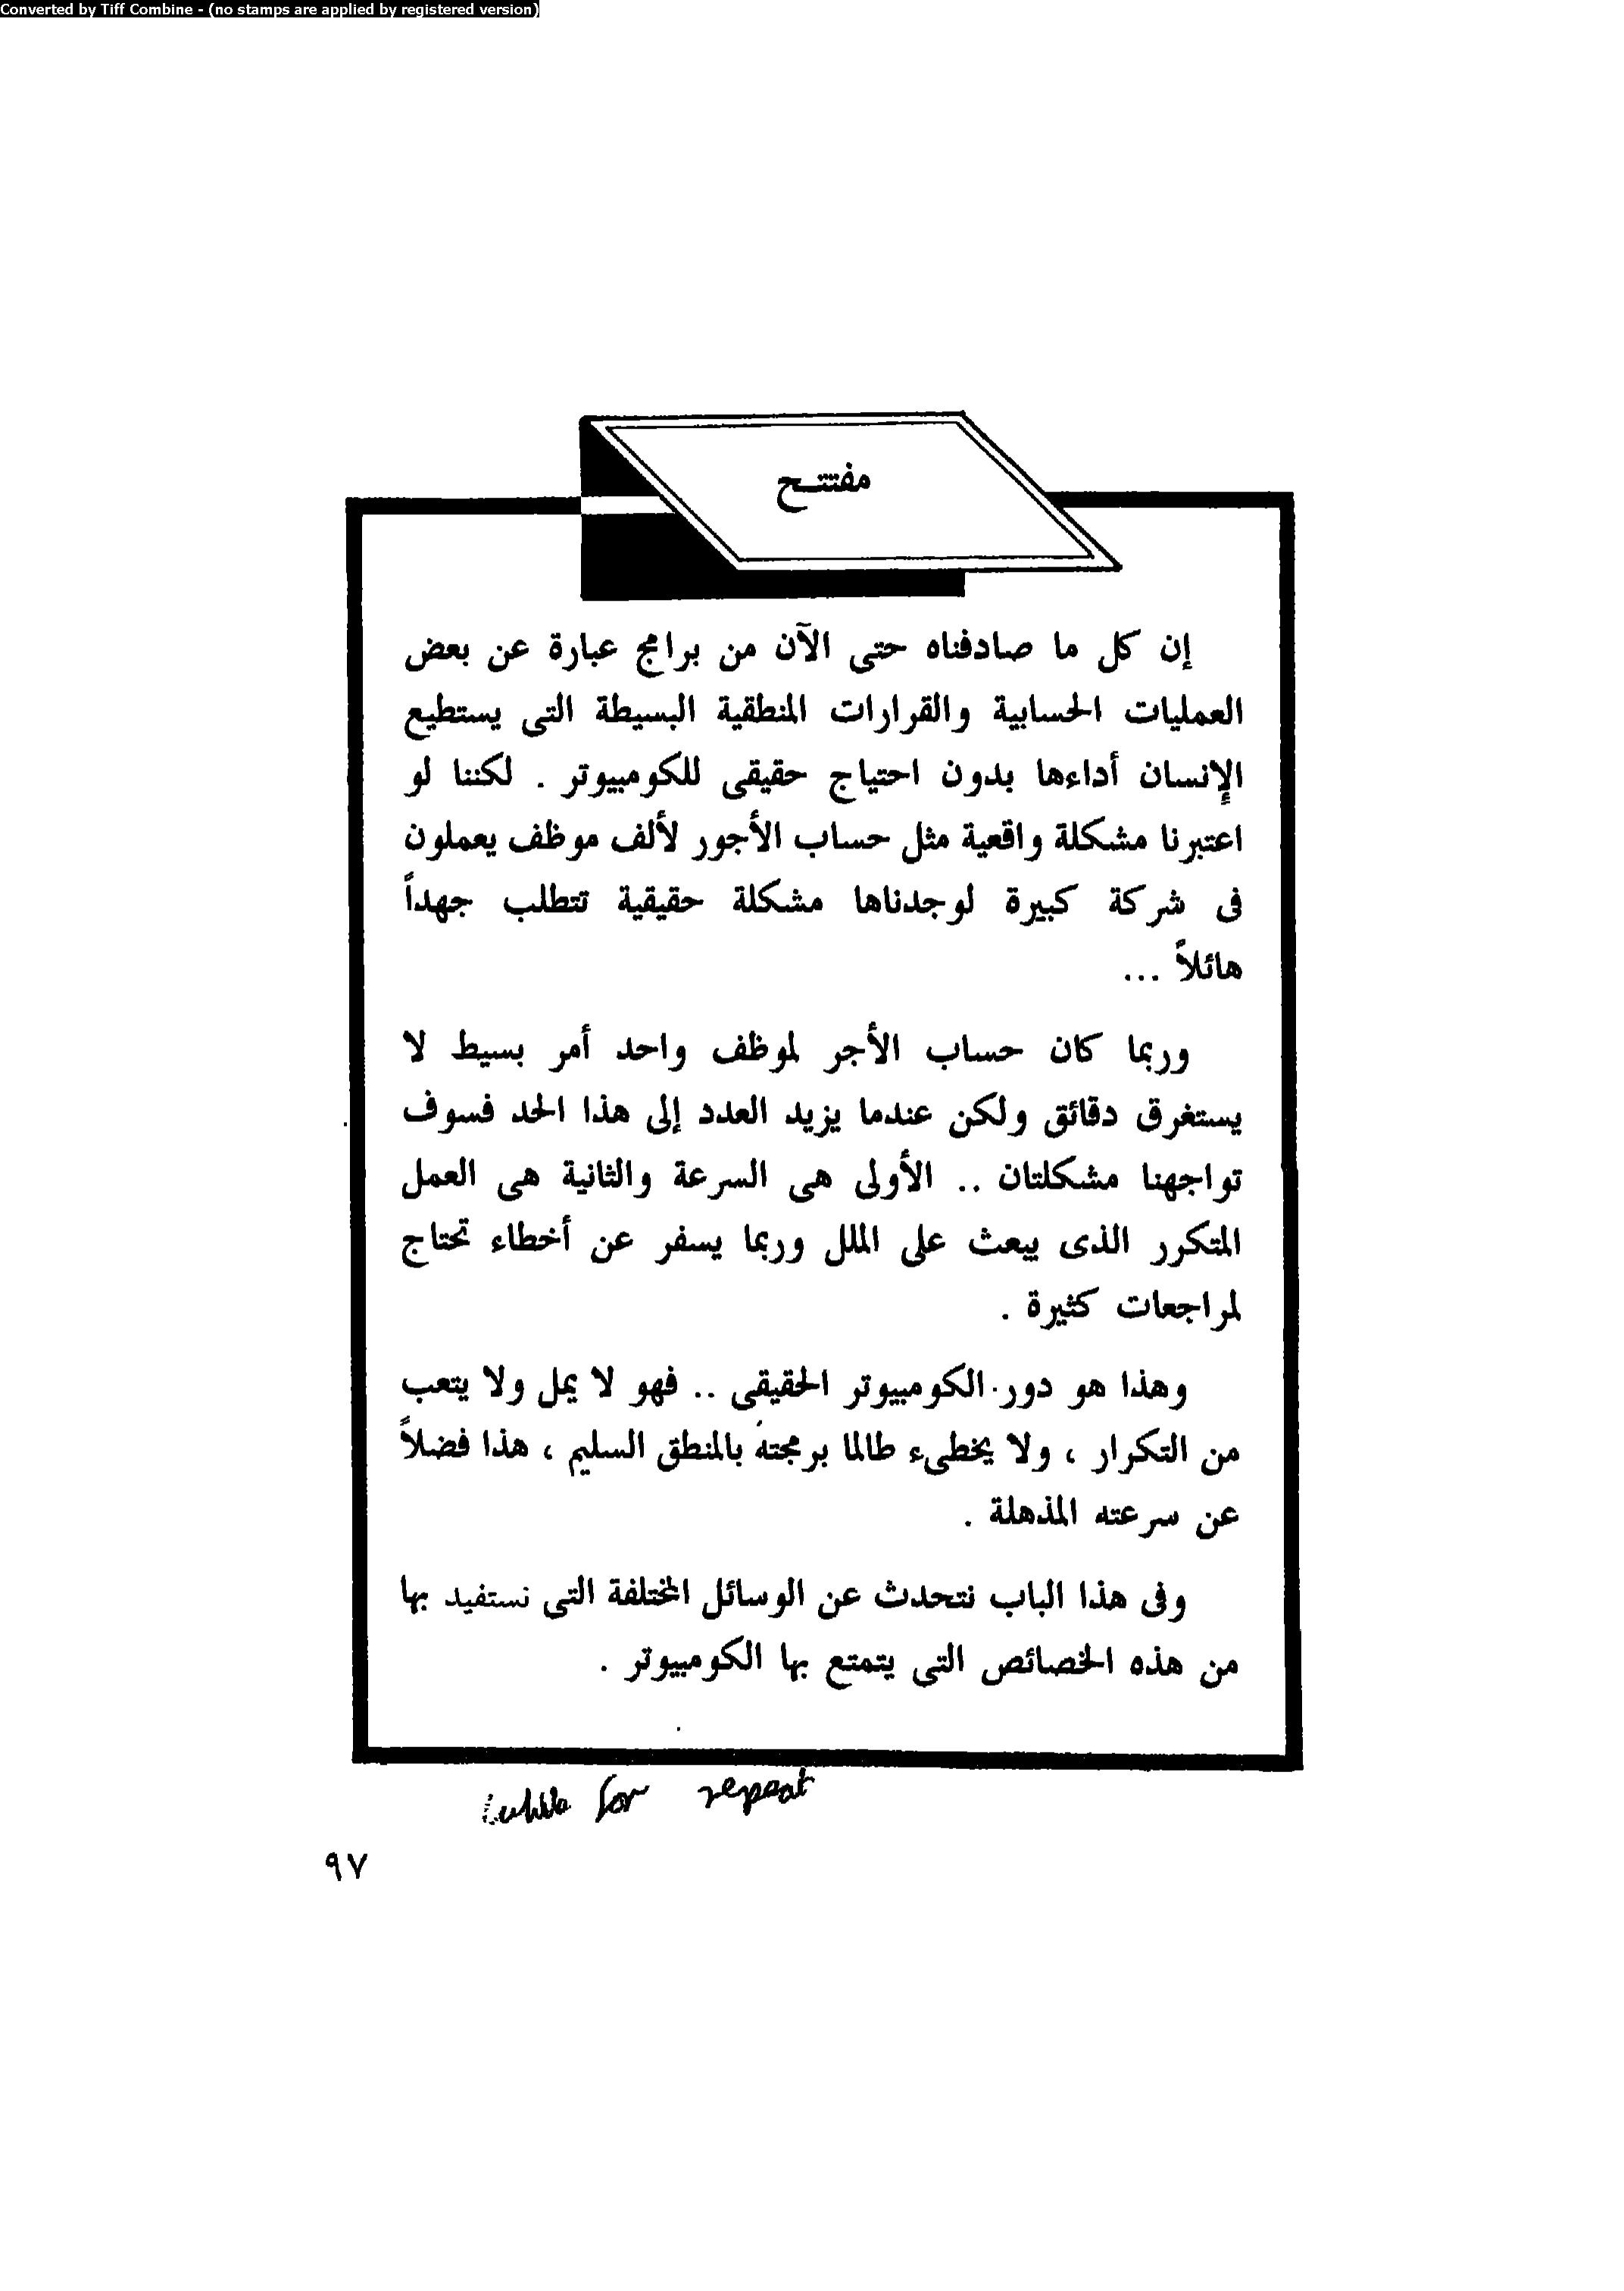 Converted by Tiff Combine - (no stamps are applied by registered version)
مفتتح
إن كل ما صادفناه حتى الآن من برامج عبارة عن بعض
العمليات الحسابية والقرارات المنطقية البسيطة التى يستطيع
الإنسان أداءها بدون احتياج حقيقى للكومبيوتر . لكننا لو
اعتبرنا مشكلة واقعية مثل حساب الأجور لألف موظف يعملون
فى شركة كبيرة لوجدناها مشكلة حقيقية تتطلب جهداً
هائلاً ...
وربما كان حساب الأجر لموظف واحد أمر بسيط لا
يستغرق دقائق ولكن عندما يزيد العدد إلى هذا الحد فسوف
تواجهنا مشكلتان .. الأولى هى السرعة والثانية هى العمل
المتكرر الذى يبعث على الملل وربما يسفر عن أخطاء تحتاج
لمراجعات كثيرة .
وهذا هو دور الكومبيوتر الحقيقى .. فهو لا يمل ولا يتعب
من التكرار ، ولا يخطىء طالما برمجته بالمنطق السليم ، هذا فضلاً
عن سرعته المذهلة .
وفى هذا الباب نتحدث عن الوسائل المختلفة التى نستفيد بها
من هذه الخصائص التى يتمتع بها الكومبيوتر .
for repeat
٩٧